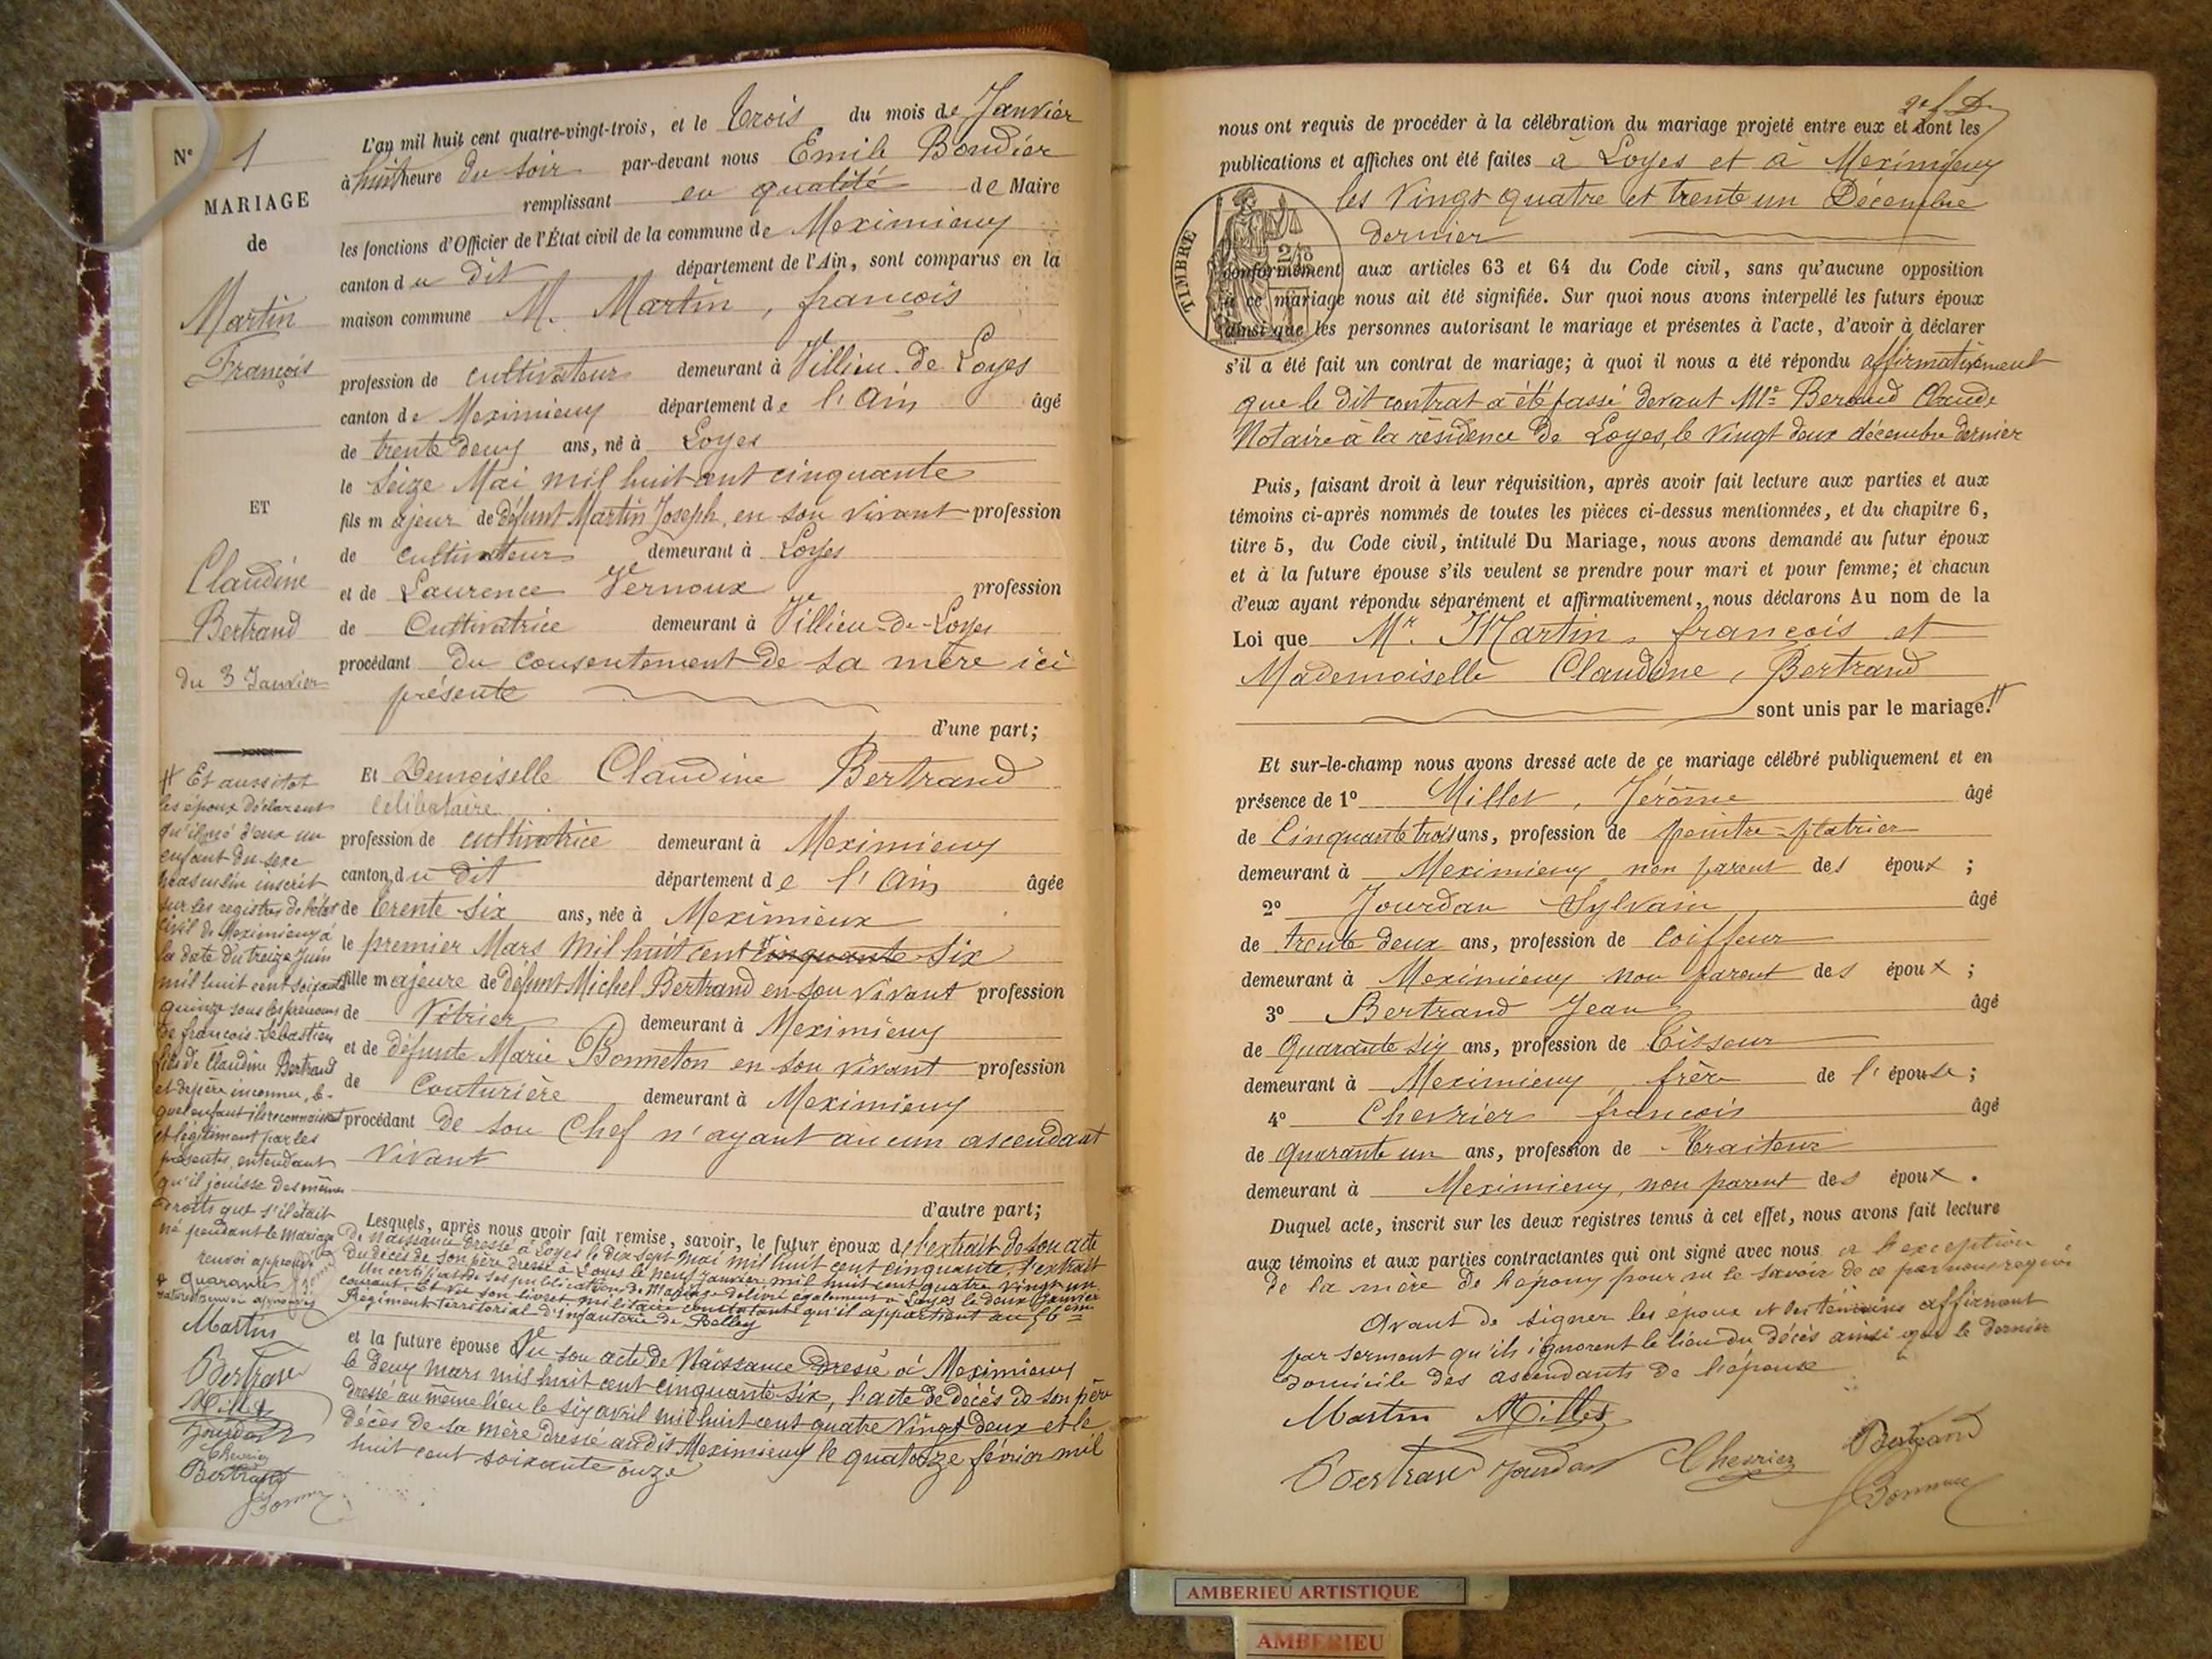 N° 1
MARIAGE
de
Martin
François
ET
Claudine
Bertrand
du 3 Janvier
L'an mil huit cent quatre-vingt-trois, et le trois du mois de Janvier
à huit heure du soir par-devant nous Emile Boudier
remplissant en qualité de Maire
les fonctions d'Officier de l'État civil de la commune de Meximieux
canton du dit département de l'Ain, sont comparus en la
maison commune M. Martin, françois
profession de cultivateur demeurant à Villieu-de-Loyes
canton de Meximieux département de l'Ain âgé
de trente deux ans, né à Loyes
le seize Mai mil huit cent cinquante
fils majeur de défunt Martin Joseph, en son vivant profession
de cultivateur demeurant à Loyes
et de Laurence Vernoux profession
de Cultivatrice demeurant à Villieu-de-Loyes
procédant du consentement de sa mère ici
présente
d'une part;
Et Demoiselle Claudine Bertrand
célibataire
profession de cultivatrice demeurant à Meximieux
canton du dit département de l'Ain âgée
de trente six ans, née à Meximieux
le premier Mars mil huit cent cinquante six
fille majeure de défunt Michel Bertrand en son vivant profession
de Vitrier demeurant à Meximieux
et de défunte Marie Bonneton en son vivant profession
de Couturière demeurant à Meximieux
procédant de son Chef n'ayant aucun ascendant
vivant
d'autre part;
Lesquels, après nous avoir fait remise, savoir, le futur époux de l'extrait de son acte
de Naissance dressé à Loyes le dix-sept Mai mil huit cent cinquante, l'extrait
du décès de son père dressé à Loyes le neuf janvier mil huit cent quatre vingt un
Un certificat de ses publications de Mariage délivré également à Loyes le deux Janvier
courant. Et vu son livret militaire constatant qu'il appartient au 56eme
Régiment territorial d'infanterie de Belley
et la future épouse Vu son acte de Naissance dressé à Meximieux
le deux mars mil huit cent cinquante six, l'acte de décès de son père
dressé au même lieu le six avril mil huit cent quatre vingt deux et le
décès de sa mère dressé au dit Meximieux le quatorze février mil
huit cent soixante onze
# Et aussitot
les époux déclarent
qu'il est né d'eux un
enfant du sexe
masculin inscrit
sur les registres de l'état
civil de Meximieux à
la date du treize Juin
mil huit cent soixante
quinze sous les prénoms
de françois-Sébastien
fils de Claudine Bertrand
et de père inconnu, le-
quel enfant ils reconnaissent
et légitiment par les
présentes, entendant
qu'il jouisse des mêmes
droits que s'il était
né pendant le mariage
renvoi approuvé
+ quarante
Martin
Bertrand
Millet
Jourdan
Chevrier
Bertrand
nous ont requis de procéder à la célébration du mariage projeté entre eux et dont les
publications et affiches ont été faites à Loyes et à Meximieux
les vingt quatre et trente un Décembre
dernier
TIMBRE
conformément aux articles 63 et 64 du Code civil, sans qu'aucune opposition
à ce mariage nous ait été signifiée. Sur quoi nous avons interpellé les futurs époux
ainsi que les personnes autorisant le mariage et présentes à l'acte, d'avoir à déclarer
s'il a été fait un contrat de mariage; à quoi il nous a été répondu affirmativement
que le dit contrat a été passé devant Me Beraud Claude
Notaire à la résidence de Loyes, le vingt deux décembre dernier
Puis, faisant droit à leur réquisition, après avoir fait lecture aux parties et aux
témoins ci-après nommés de toutes les pièces ci-dessus mentionnées, et du chapitre 6,
titre 5, du Code civil, intitulé Du Mariage, nous avons demandé au futur époux
et à la future épouse s'ils veulent se prendre pour mari et pour femme; et chacun
d'eux ayant répondu séparément et affirmativement, nous déclarons Au nom de la
Loi que Mr. Martin, françois et
Mademoiselle Claudine, Bertrand
sont unis par le mariage. #
Et sur-le-champ nous avons dressé acte de ce mariage célébré publiquement et en
présence de 1° Millet, Jérôme âgé
de Cinquante trois ans, profession de peintre-platrier
demeurant à Meximieux, non parent des époux ;
2° Jourdan Sylvain âgé
de trente deux ans, profession de coiffeur
demeurant à Meximieux non parent des époux ;
3° Bertrand Jean âgé
de Quarante six ans, profession de Tisseur
demeurant à Meximieux, frère de l'épouse ;
4° Chevrier françois âgé
de Quarante un ans, profession de Traiteur
demeurant à Meximieux, non parent des époux .
Duquel acte, inscrit sur les deux registres tenus à cet effet, nous avons fait lecture
aux témoins et aux parties contractantes qui ont signé avec nous à l'exception
de la mère de l'époux pour ne le savoir de ce par nous requise
Avant de signer les époux et les témoins affirment
par serment qu'ils ignorent le lieu du décès ainsi que le dernier
domicile des ascendants de l'épouse
Martin Millet
Bertrand Jourdan Chevrier Bertrand
AMBERIEU ARTISTIQUE
AMBERIEU